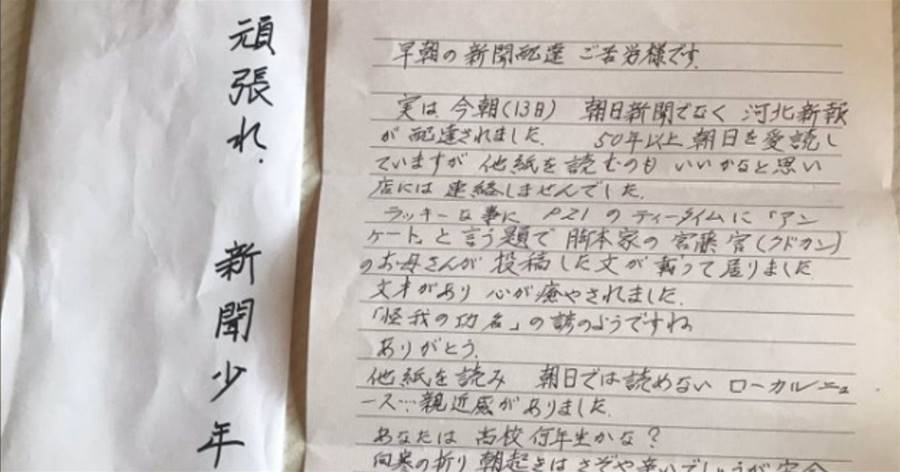 頑張れ、新聞少年
早朝の新聞配達 ご苦労様です。
実は今朝(13日) 朝日新聞でなく 河北新報
が配達されました。 50年以上朝日を愛読し
ていますが 他紙を読むのもいいかなと思い
店には連絡しませんでした。
ラッキーな事に P21のティータイムに「アン
ケート」と言う題で 脚本家の宮藤官(クドカン)
のお母さんが投稿した文が載って居りました
文才があり心が癒やされました。
「怪我の功名」の諺のようですね
ありがとう。
他紙を読み 朝日では読めない ローカルニュ
ース…親近感がありました。
あなたは 高校何年生かな?
向寒の折り 朝起きはさぞや辛いでしょうが